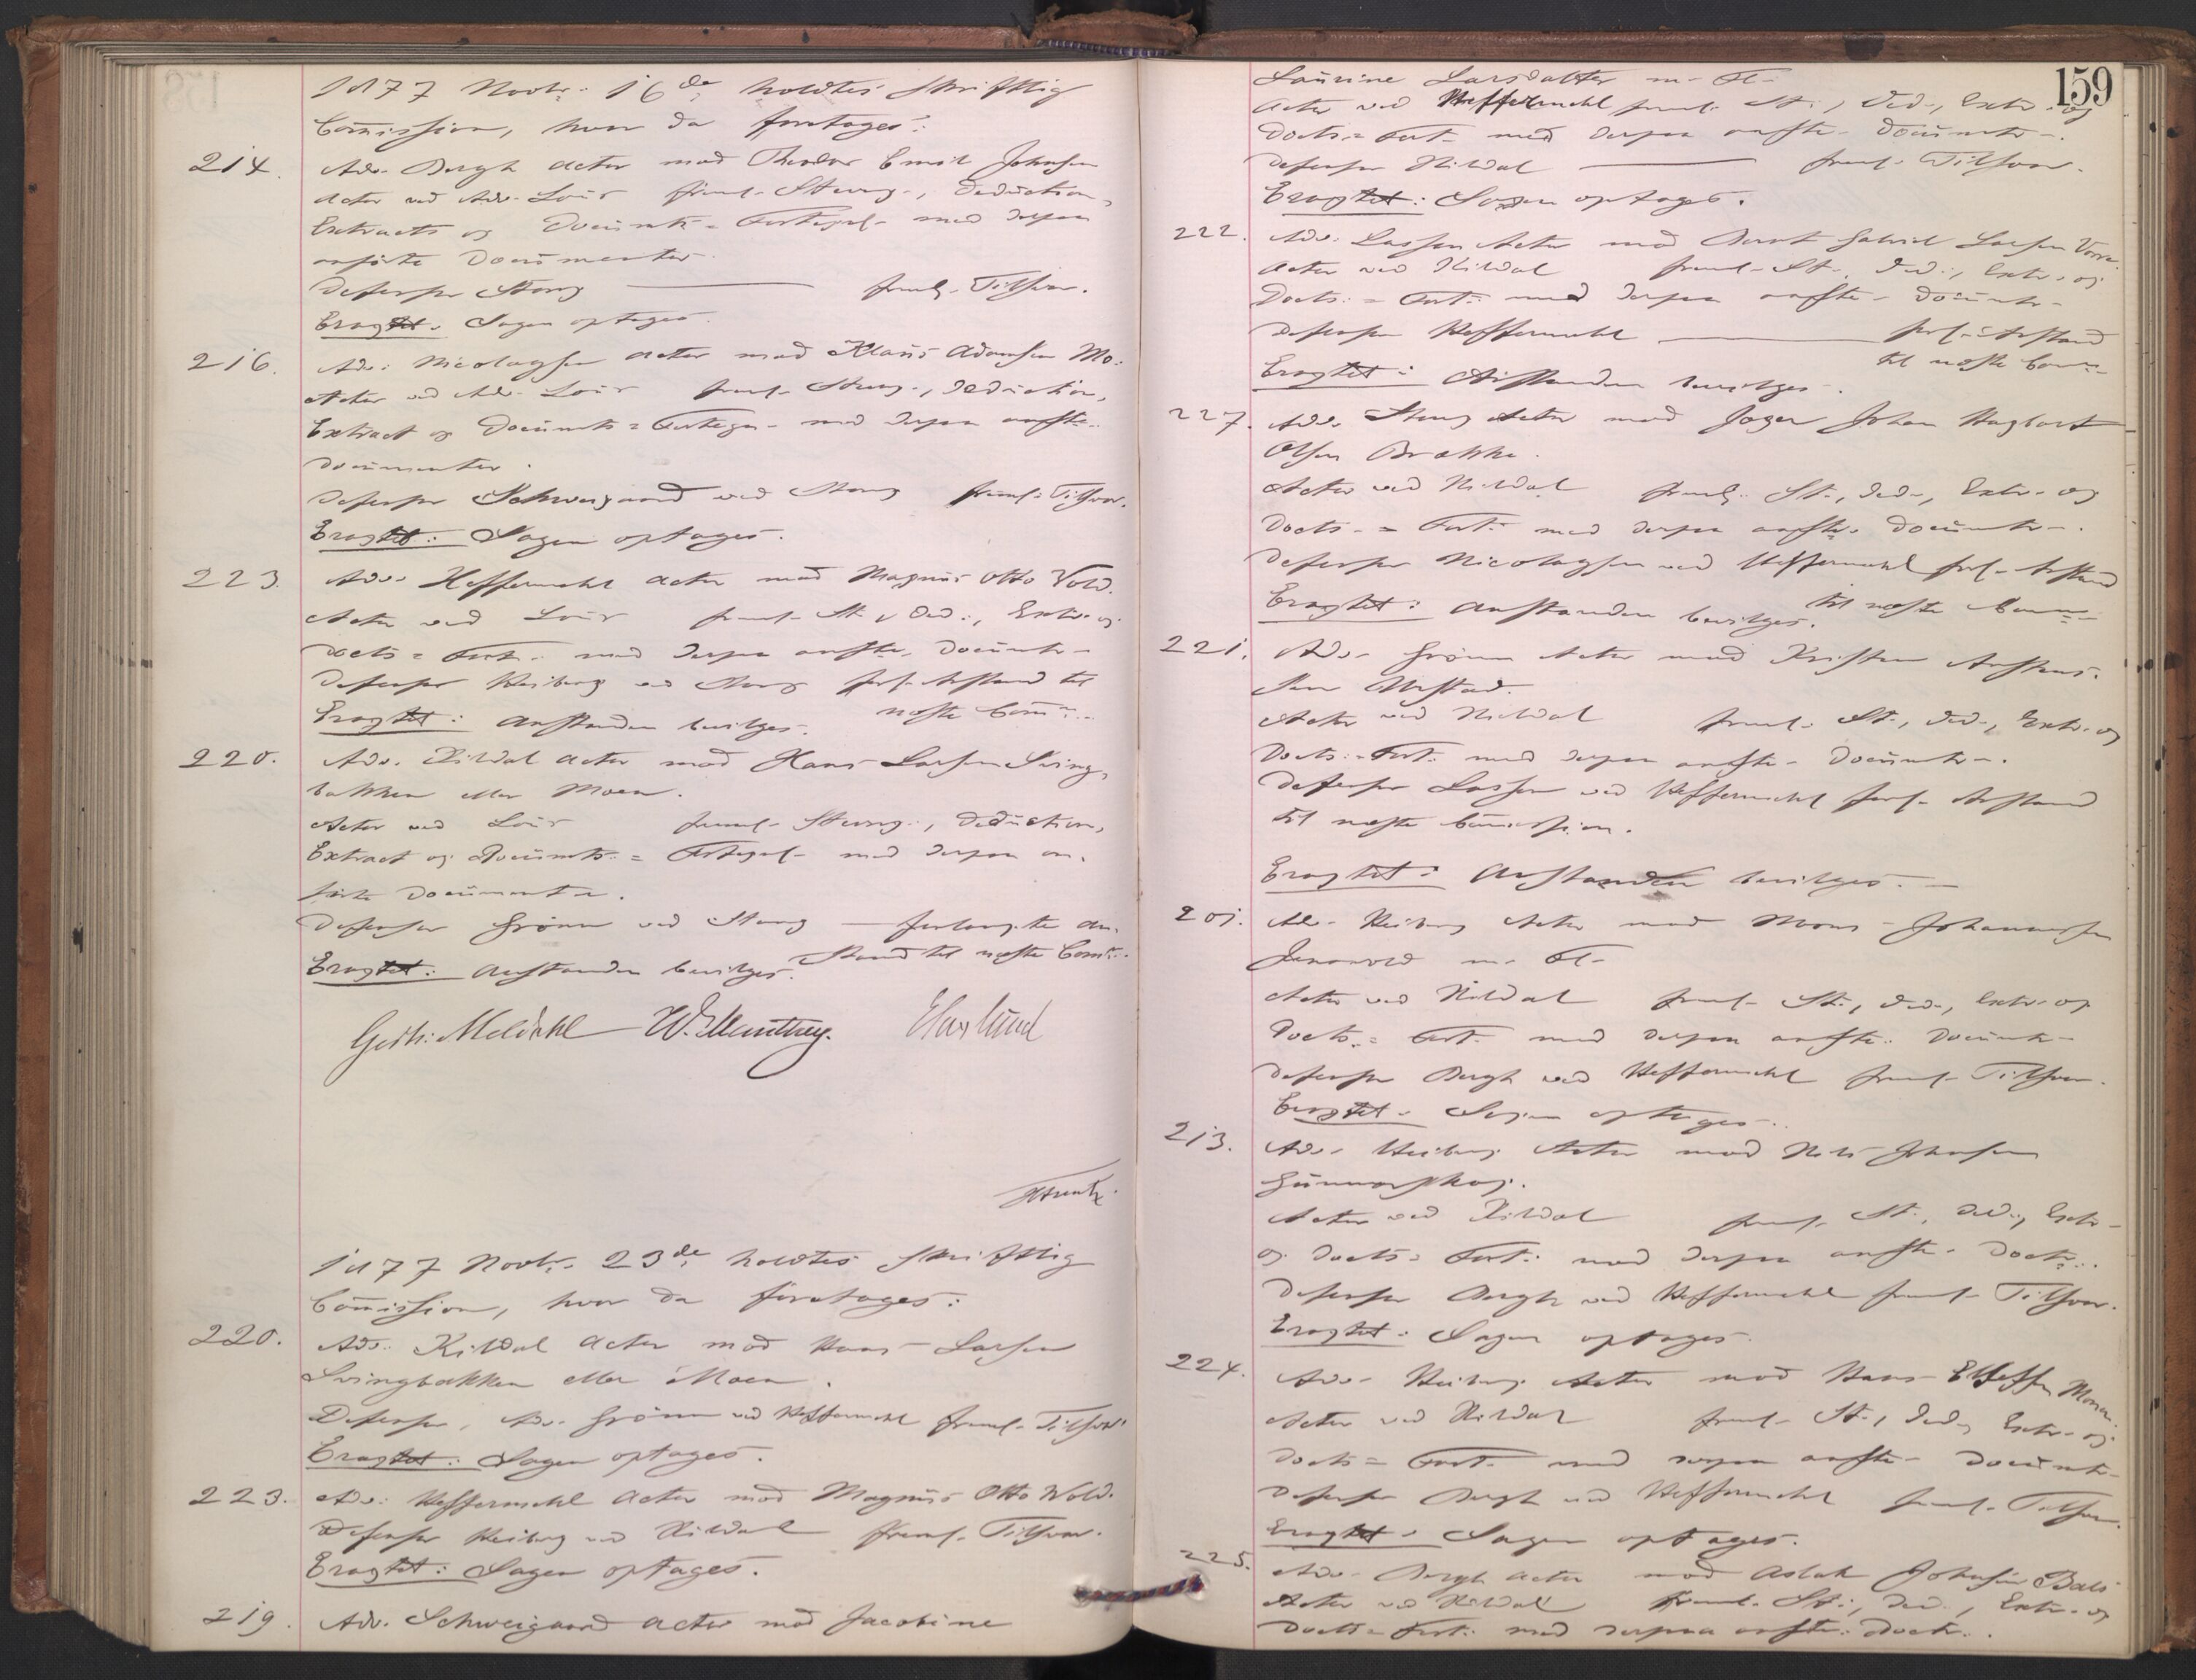 1877 Novbr. 16de holdtes skriftlig
Commission, hvor da foretoges:
214. Adv. Bergh Actor mod Theodor Emil Johnsen
Actor ved Adv. Lous freml. Stevng., Deduction,
Extracts og Documts = Forteguel. med derpaa
anførte Documenter.
Defensor Stang — freml. Tilsvar.
Eragtet: Sagen optages.
216. Adv. Nicolaysen Actor mod Klaus Adamsen Mo.
Actor ved Adv. Lous freml. Stevng., Deduction,
Extract og Documts = Fortegn. med derpaa anfte.
Documenter.
Defensor Schweigaard ved Stang freml. Tilsvar.
Eragtet: Sagen optages.
223. Adv. Heffermehl Actor mod Magnus Otto Vold.
Actor ved Lous freml. St., Ded., Extr. og
Docts = Fort. med derpaa anfte. Documtr.
Defensor Heiberg ved Stang forl. Anstand til
næste Comm.
Eragtet: Anstanden bevilges.
220. Adv. Kildal Actor mod Hans Larsen Sving-
bakken eller Moen.
Actor ved Lous freml. Stevng., Deduction,
Extract og Documts. = Forteguel. med derpaa an-
førte Documenter.
Defensor Grönn ved Stang — forlangte An-
stand til næste Comm.
Eragtet: Anstanden bevilges.
Gerh: Meldahl W. Münthey. EHaslund
1877 Novbr. 23de holdtes skriftlig
Commission, hvor da foretoges:
220. Adv. Kildal Actor mod Hans Larsen
Svingbakken eller Moen.
Defensor, Adv. Grönn ved Heffermehl freml. Tilsvar.
Eragtet: Sagen optages.
223. Adv. Heffermehl Actor mod Magnus Otto Vold.
Defensor Heiberg ved Kildal freml. Tilsvar.
Eragtet: Sagen optages.
219. Adv. Schweigaard Actor mod Jacobine
159
Laurine Larsdatter m. Fl.
Actor ved Heffermehl freml. St., Ded., Extr. og
Docts = Fort. med derpaa anfte. Documtr.
Defensor Kildal — freml. Tilsvar.
Eragtet: Sagen optages.
222. Adv. Lassen Actor mod Bernt Gabriel Larsen Vorre.
Actor ved Kildal freml. St., Ded., Extr. og
Docts. = Fort. med derpaa anfte. Documtr.
Defensor Heffermehl — forl. Anstand
til næste Comm.
Eragtet: Anstanden bevilges.
227. Adv. Stang Actor mod Jæger Johan Hagbart
Olsen Brække.
Actor ved Kildal freml. St., Ded., Extr. og
Docts. = Fort. med derpaa anfte. Documtr.
Defensor Nicolaysen ved Heffermehl forl. Anstand
til næste Comm.
Eragtet: Anstanden bevilges.
221. Adv. Grönn Actor mod Kristen Anstens-
sen Alvstad.
Actor ved Kildal freml. St., Ded., Extr. og
Docts. = Fort. med derpaa anfte. Documtr.
Defensor Lassen ved Heffermehl forl. Anstand
til næste Commission.
Eragtet: Anstanden bevilges. —
201. Adv. Heiberg Actor mod Mons Johannesen
m. Fl.
Actor ved Kildal freml. St., Ded., Extr. og
Docts. = Fort. med derpaa anfte. Documtr.
Defensor Bergh ved Heffermehl freml. Tilsvar.
Eragtet: Sagen optages.
213. Adv. Heiberg Actor mod Nils Johnsen
Gunnarskog.
Actor ved Kildal freml. St., Ded., Extr.
og Docts = Fort. med derpaa anfte. Doctr.
Defensor Bergh ved Heffermehl freml. Tilsvar.
Eragtet: Sagen optages.
224. Adv. Heiberg Actor mod Hans Ellefsen Moen.
Actor ved Kildal freml. St., Ded., Extr. og
Docts = Fort. med derpaa anfte. Documtr.
Defensor Bergh ved Heffermehl freml. Tilsvar.
Eragtet: Sagen optages.
225. Adv. Bergh Actor mod Aslak Johnsen Bals
Actor ved Kildal freml. St., Ded., Extr. og
Docts = Fort. med derpaa anfte. Doctr.